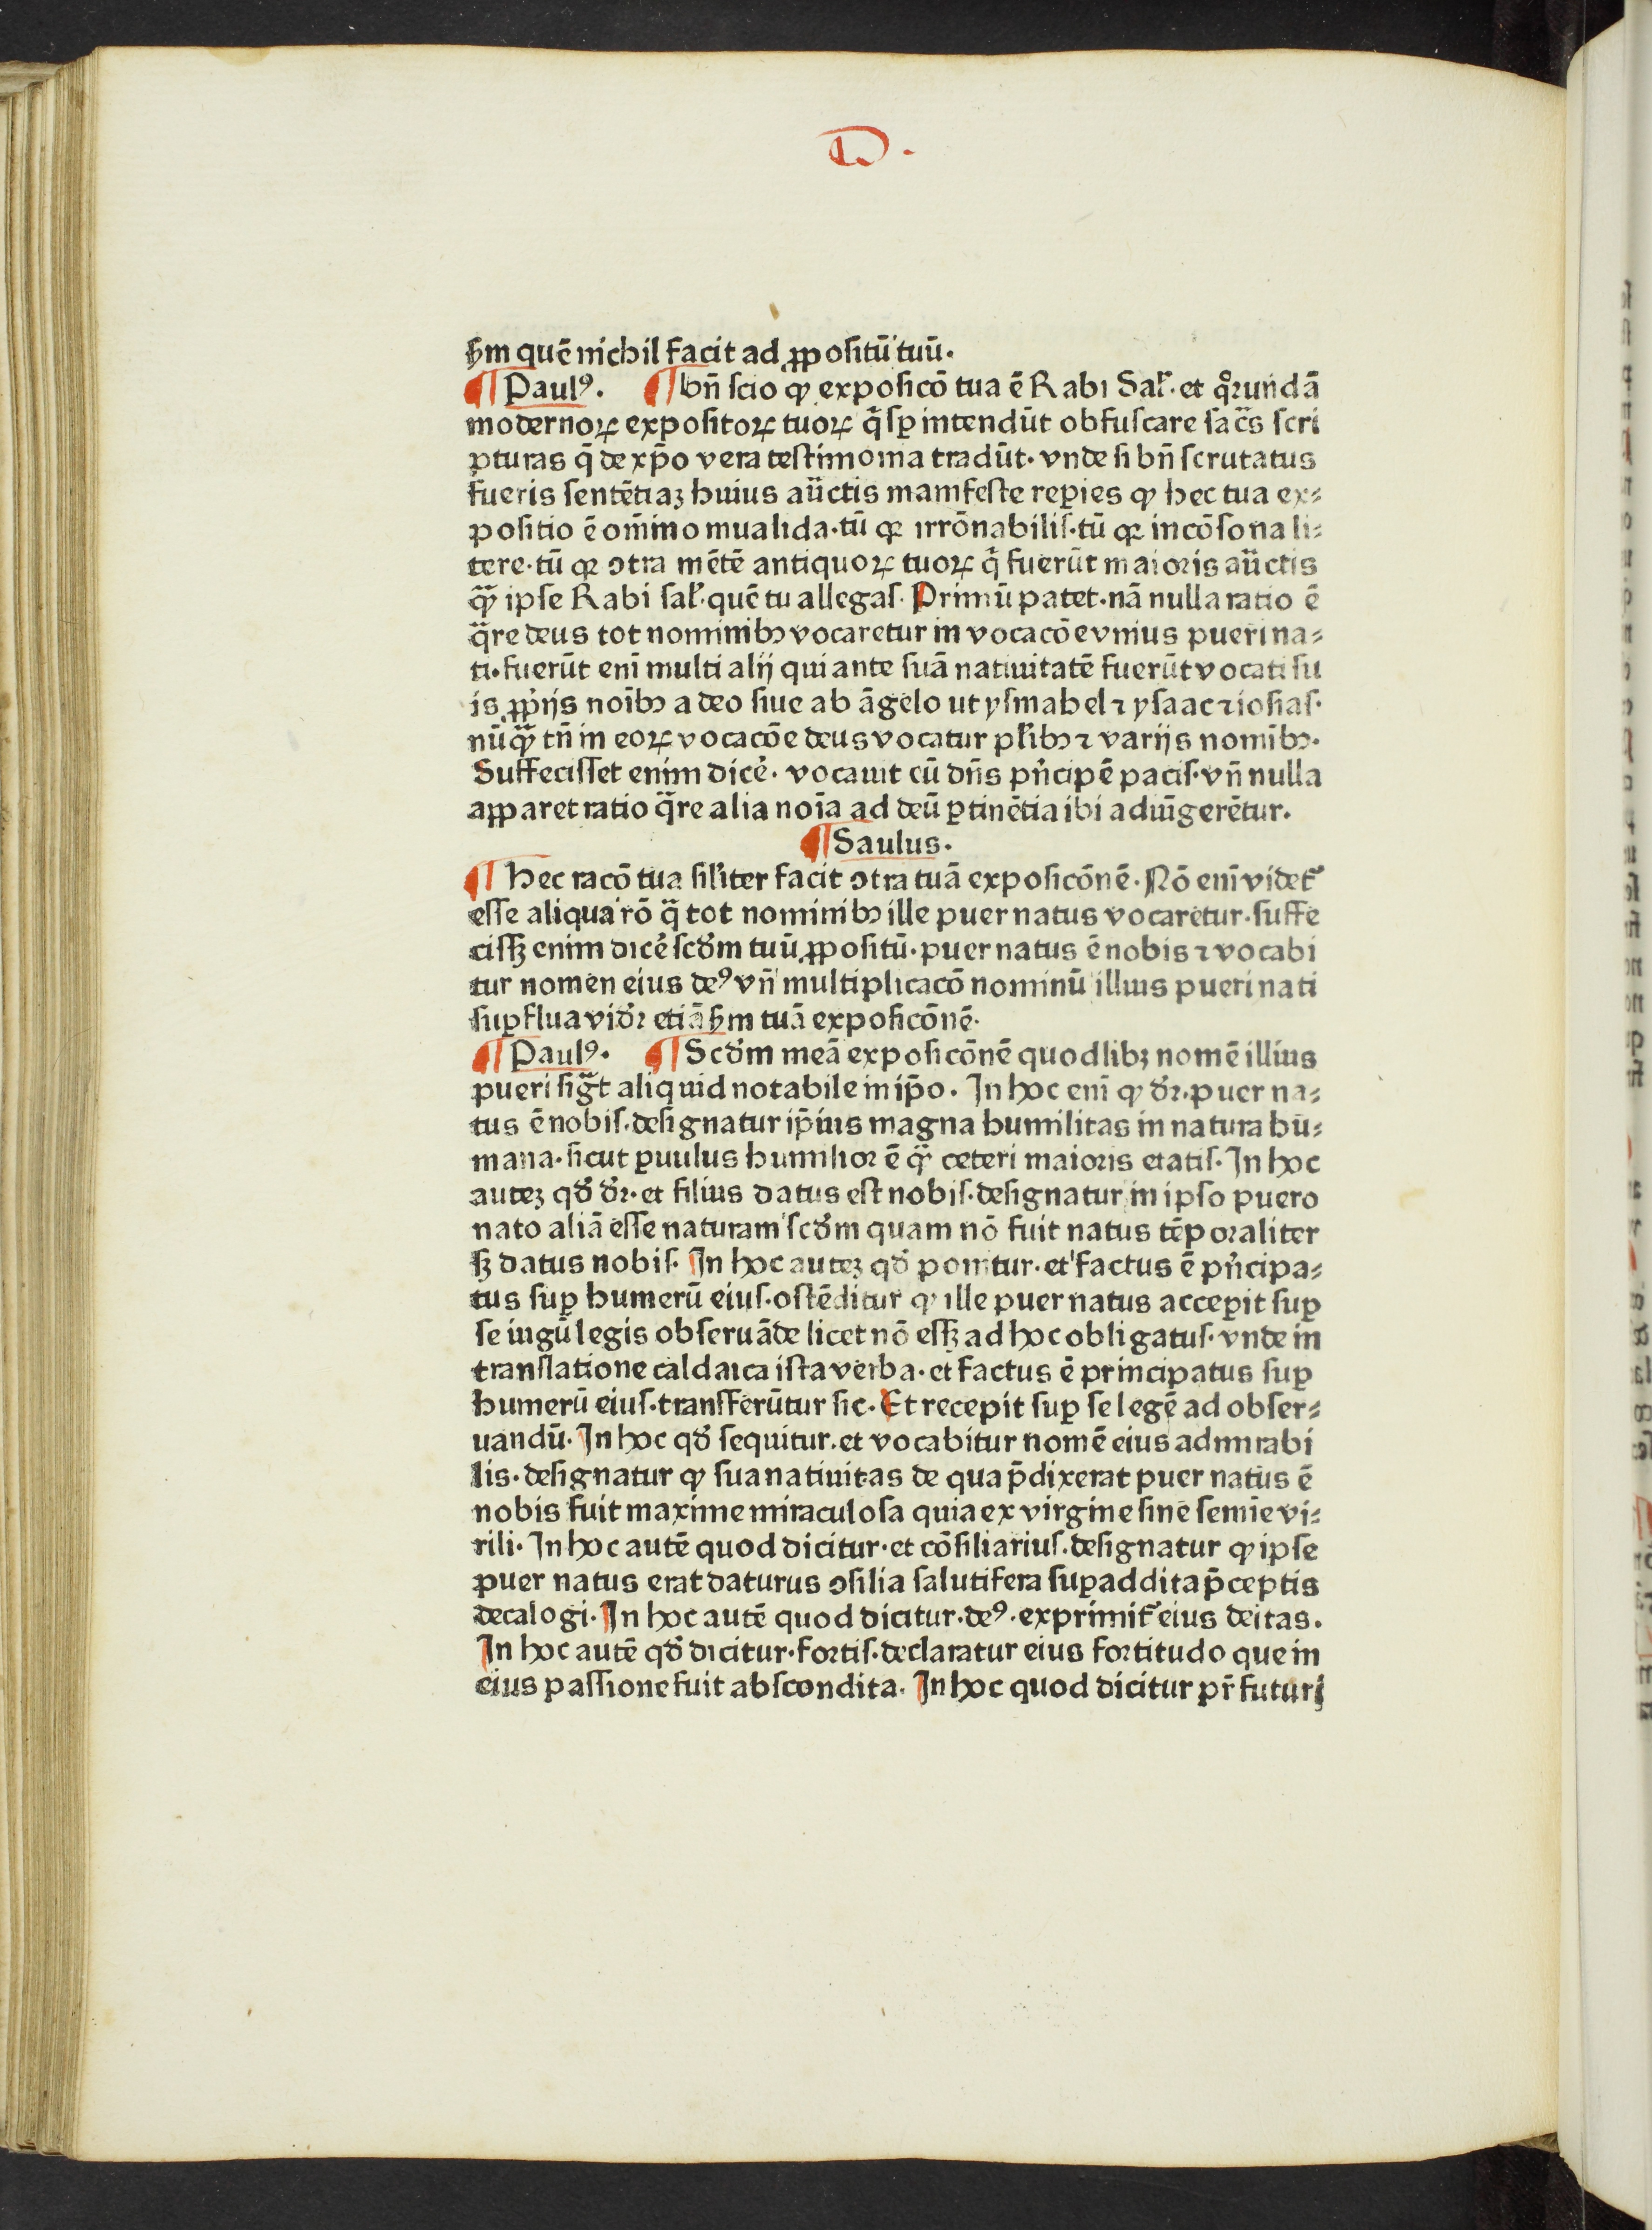 D.
ẜm quē nichil facit ad ꝓpositū tuū.
¶ Paulꝰ. ¶ bn̄ scio ꝙ exposicō tua ē Rabi Sal̄. et qͦrundā
modernoꝝ expositoꝝ tuoꝝ q̄ sꝑ intendūt obfuscare sac̄s scri
pturas q̄ de xp̄o vera testimonia tradūt. vnde si bn̄ scrutatus
fueris sentētiaꝫ huius auctͣis manifeste reꝑies ꝙ hec tua ex⸗
positio ē om̄ino inualida. tū qꝛ irrōnabilis. tū qꝛ incōsona li⸗
tere. tū qꝛ ↄtra mētē antiquoꝝ tuoꝝ q̄ fuerūt maioris auctͣis
qͣꝫ ipse Rabi sal̄. quē tu allegas. Primū patet. nā nulla ratio ē
qͣre deus tot nominibꝫ vocaretur in vocacōe vnius pueri na⸗
ti. fuerūt eni multi alij qui ante suā natiuitatē fuerūt vocati su
is ꝓprijs noībꝫ a deo siue ab āgelo ut ysmahel ⁊ ysaac ⁊ iosias.
nūqͣꝫ tn̄ in eoꝝ vocacōe deus vocatur pl̄ibꝫ ⁊ varijs nomībꝫ.
Suffecisset enim dicē. vocauit eū dn̄s pͥncipē pacis. vn̄ nulla
apparet ratio qͣre alia noīa ad deū ꝑtinētia ibi adiūgerētur.
¶ Saulus.
¶ Hec racō tua sil̄iter facit ↄtra tuā exposicōnē. Nō eni videt᷑
esse aliqua rō qͣ tot nominibꝫ ille puer natus vocaretur. suffe
cissꝫ enim dicē scd̄m tuū ꝓpositū. puer natus ē nobis ⁊ vocabi
tur nomen eius deꝰ vn̄ multiplicacō nominū illius pueri nati
suꝑflua vid̄ꝛ etiā ẜm tuā exposicōnē.
¶ Paulꝰ. ¶ Scd̄m meā exposicōnē quodlibꝫ nomē illius
pueri sigͣt aliquid notabile in ip̄o. In hoc eni ꝙ d̄ꝛ. puer na⸗
tus ē nobis. designatur ip̄ius magna humilitas in natura hu⸗
mana. sicut ꝑuulus humilior ē qͣꝫ ceteri maioris etatis. In hoc
auteꝫ qd̄ d̄ꝛ. et filius datus est nobis. designatur in ipso puero
nato aliā esse naturam scd̄m quam nō fuit natus tēporaliter
sꝫ datus nobis. In hoc auteꝫ qd̄ ponitur. et factus ē pͥncipa⸗
tus suꝑ humerū eius. ostēditur ꝙ ille puer natus accepit suꝑ
se iugū legis obseruāde licet nō essꝫ ad hoc obligatus. vnde in
translatione caldaica ista verba. et factus ē principatus suꝑ
humerū eius. transferūtur sic. Et recepit suꝑ se legē ad obser⸗
uandū. In hoc qd̄ sequitur. et vocabitur nomē eius admirabi
lis. designatur ꝙ sua natiuitas de qua p̄dixerat puer natus ē
nobis fuit maxime miraculosa quia ex virgine sine semīe vi⸗
rili. In hoc autē quod dicitur. et cōsiliarius. designatur ꝙ ipse
puer natus erat daturus ↄsilia salutifera suꝑaddita p̄ceptis
decalogi. In hoc autē quod dicitur. deꝰ. exprimit᷑ eius deitas.
In hoc autē qd̄ dicitur. fortis. declaratur eius fortitudo que in
eius passione fuit abscondita. In hoc quod dicitur pr̄ futuri